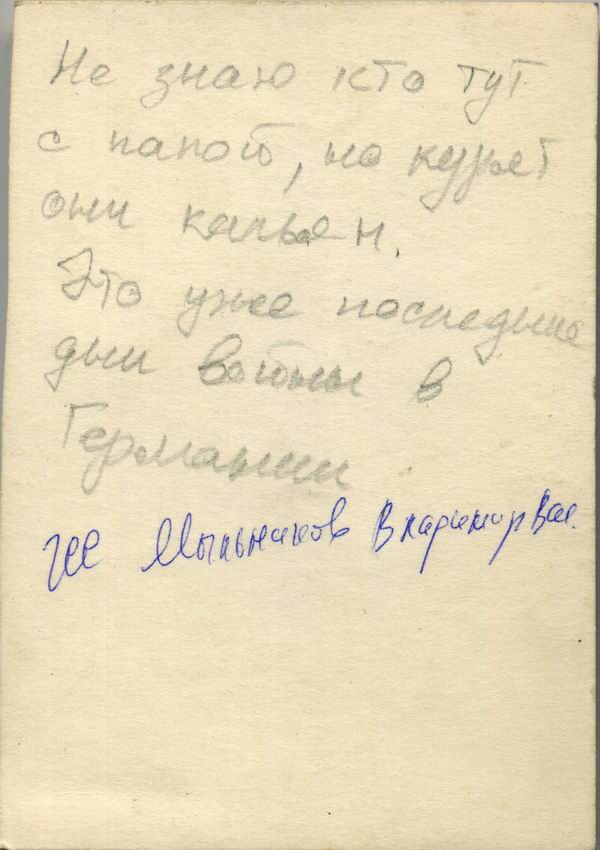 Не знаю кто тут
с папой, но курят
они кальян.
Это уже последние
дни войны в
Германии
Мыльников Владимир Вас.